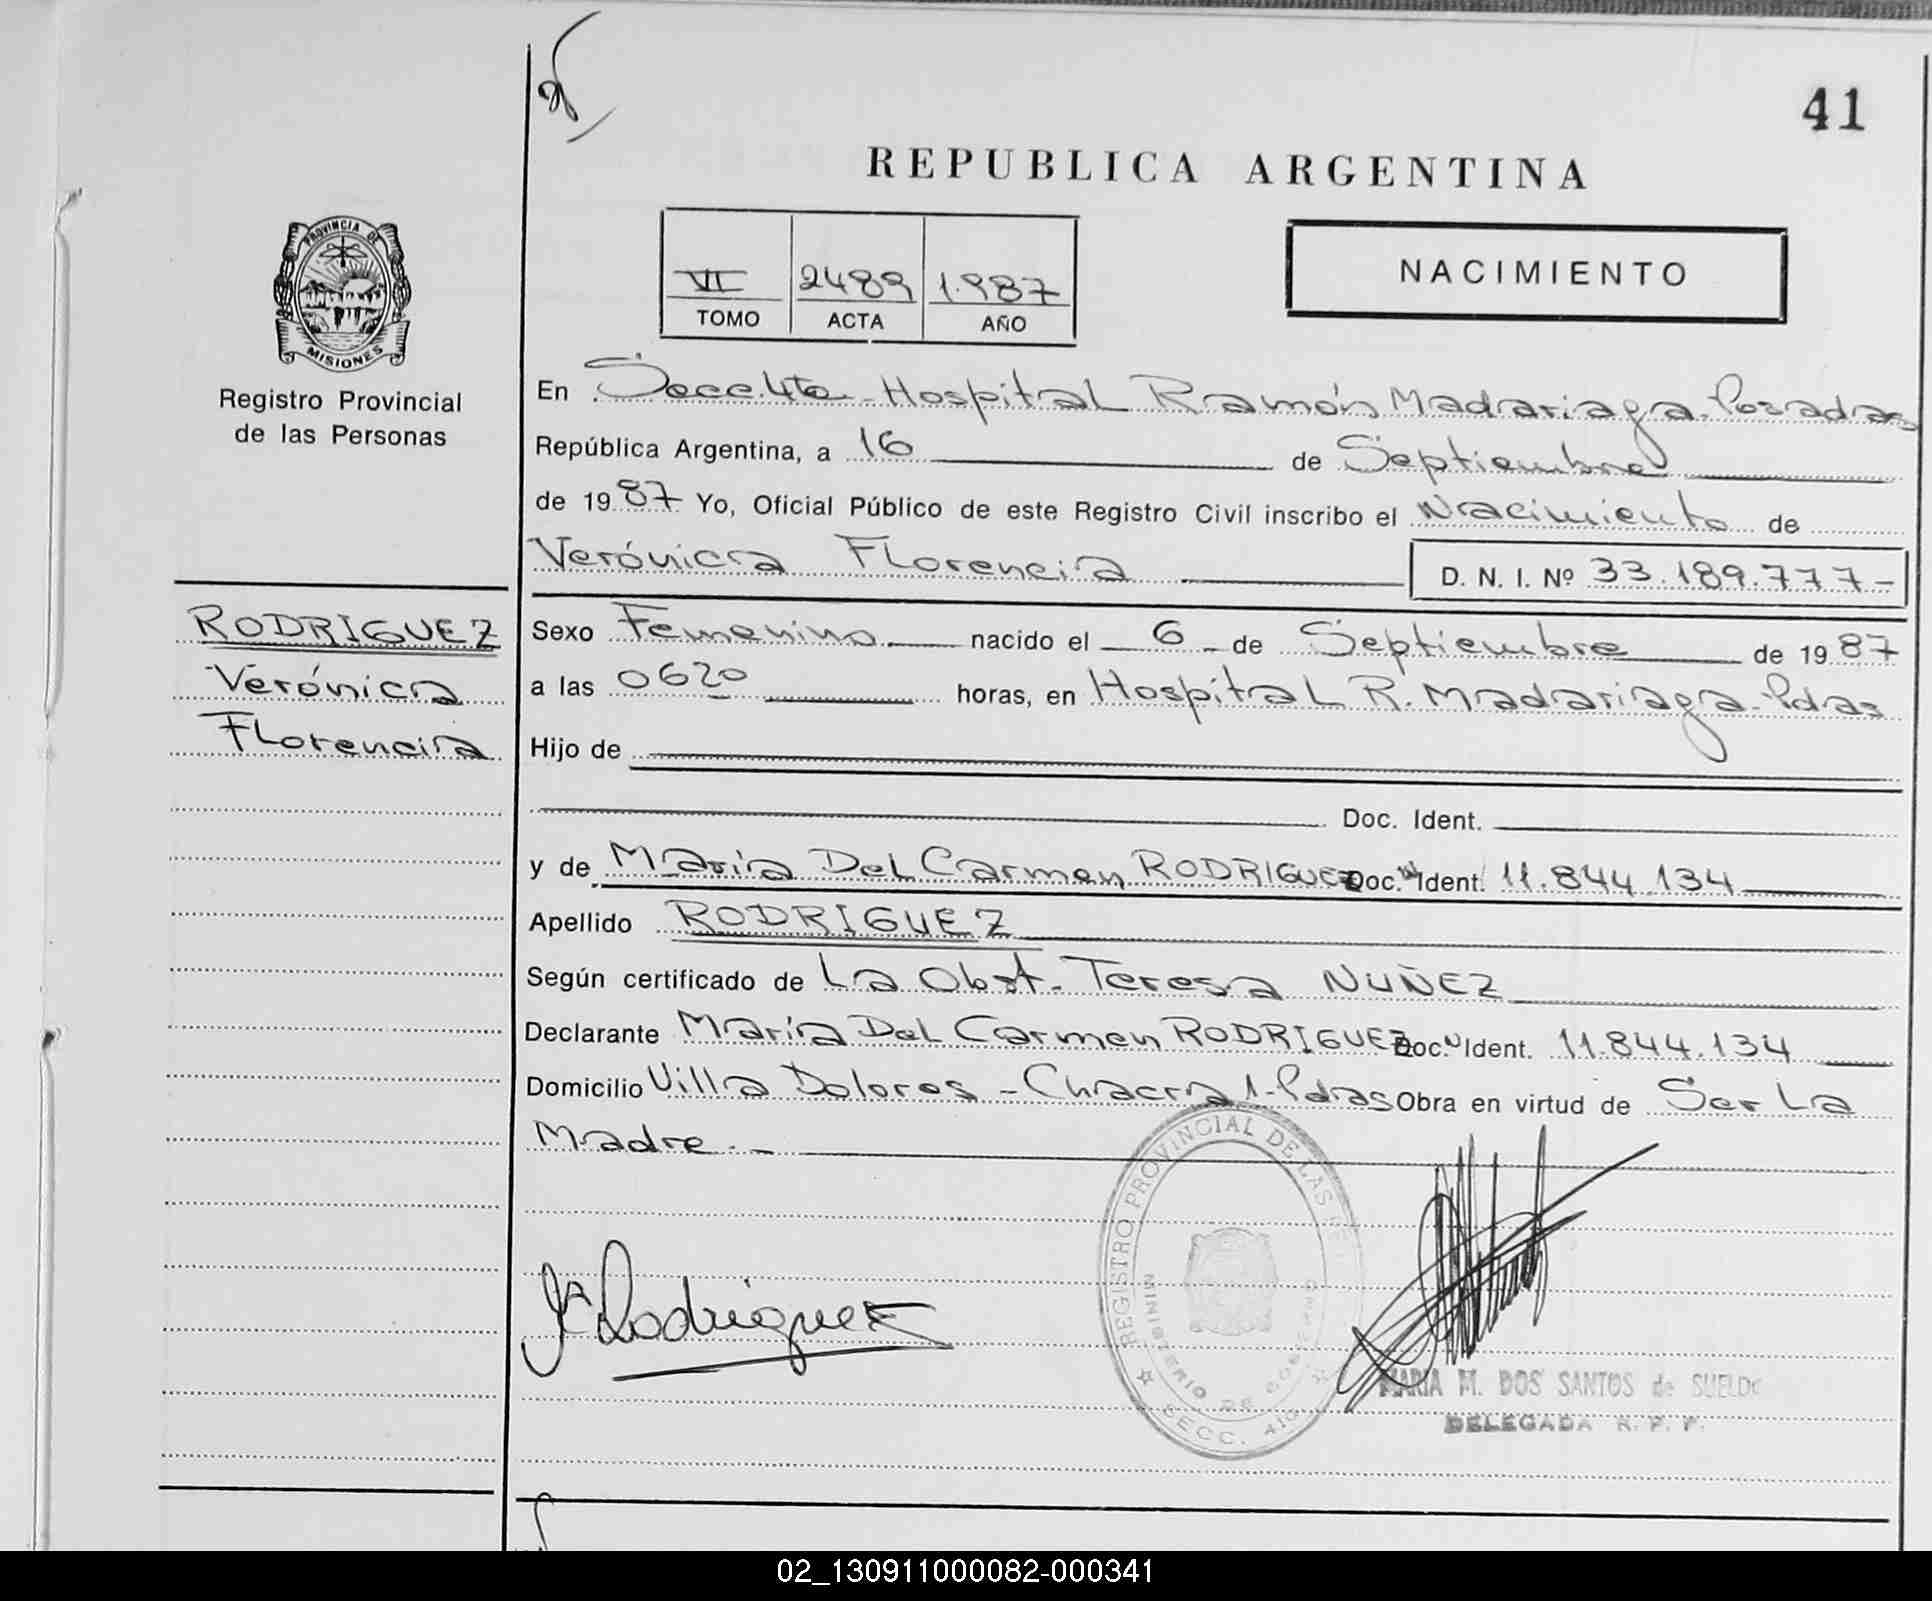 41
REPUBLICA ARGENTINA
PROVINCIA DE
MISIONES
Registro Provincial
de las Personas
VI 2489 1.987
TOMO ACTA AÑO
NACIMIENTO
En Secc. 4ta - Hospital Ramón Madariaga - Posadas
República Argentina, a 16 de Septiembre
de 1987 Yo, Oficial Público de este Registro Civil inscribo el Nacimiento de
Verónica Florencia D. N. I. Nº 33.189.777-
RODRIGUEZ
Verónica
Florencia
Sexo Femenino nacido el 6 de Septiembre de 1987
a las 0620 horas, en Hospital R. Madariaga - Pdas
Hijo de
Doc. Ident.
y de María Del Carmen RODRIGUEZ Doc. Ident. 11.844.134
Apellido RODRIGUEZ
Según certificado de La Obst. Teresa NUÑEZ
Declarante María Del Carmen RODRIGUEZ Doc. Ident. 11.844.134
Domicilio Villa Dolores - Chacra 1 - Pdas Obra en virtud de Ser La
Madre.-
REGISTRO PROVINCIAL DE LAS
MINISTERIO DE GOBIERNO
SECC. 4ta
Rodriguez
MARIA M. DOS SANTOS de SUELDO
DELEGADA R. P. P.
02_130911000082-000341